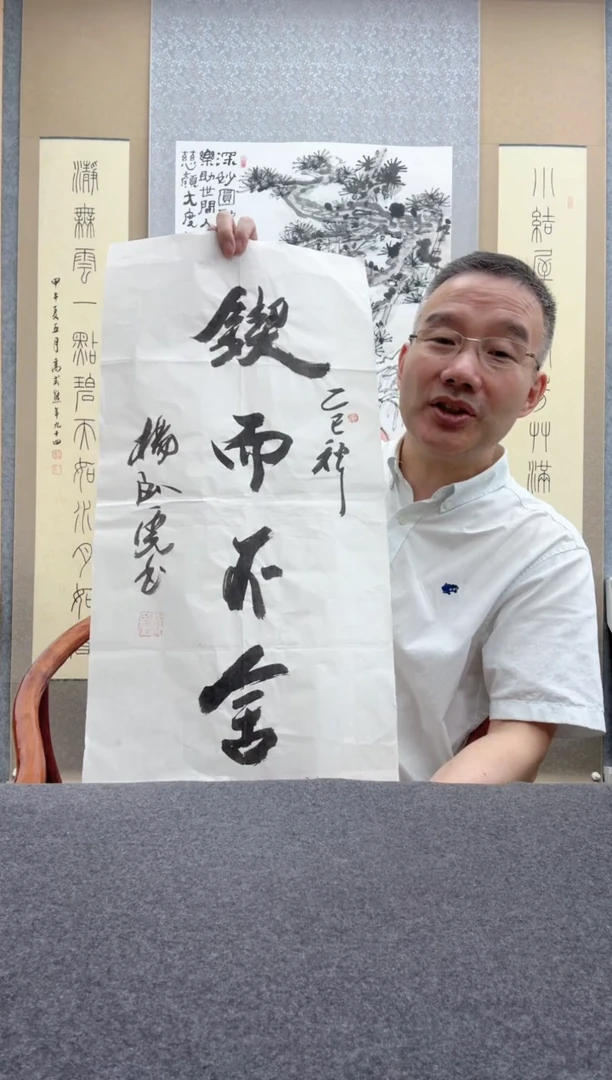 小結屋
艸滿
乙巳秋
鍥而不舍
楊
書
深妙圓
樂助世間人
慈顏大度
瀞無雲一點碧天如水月如
甲午夏五月高式熊年九十四